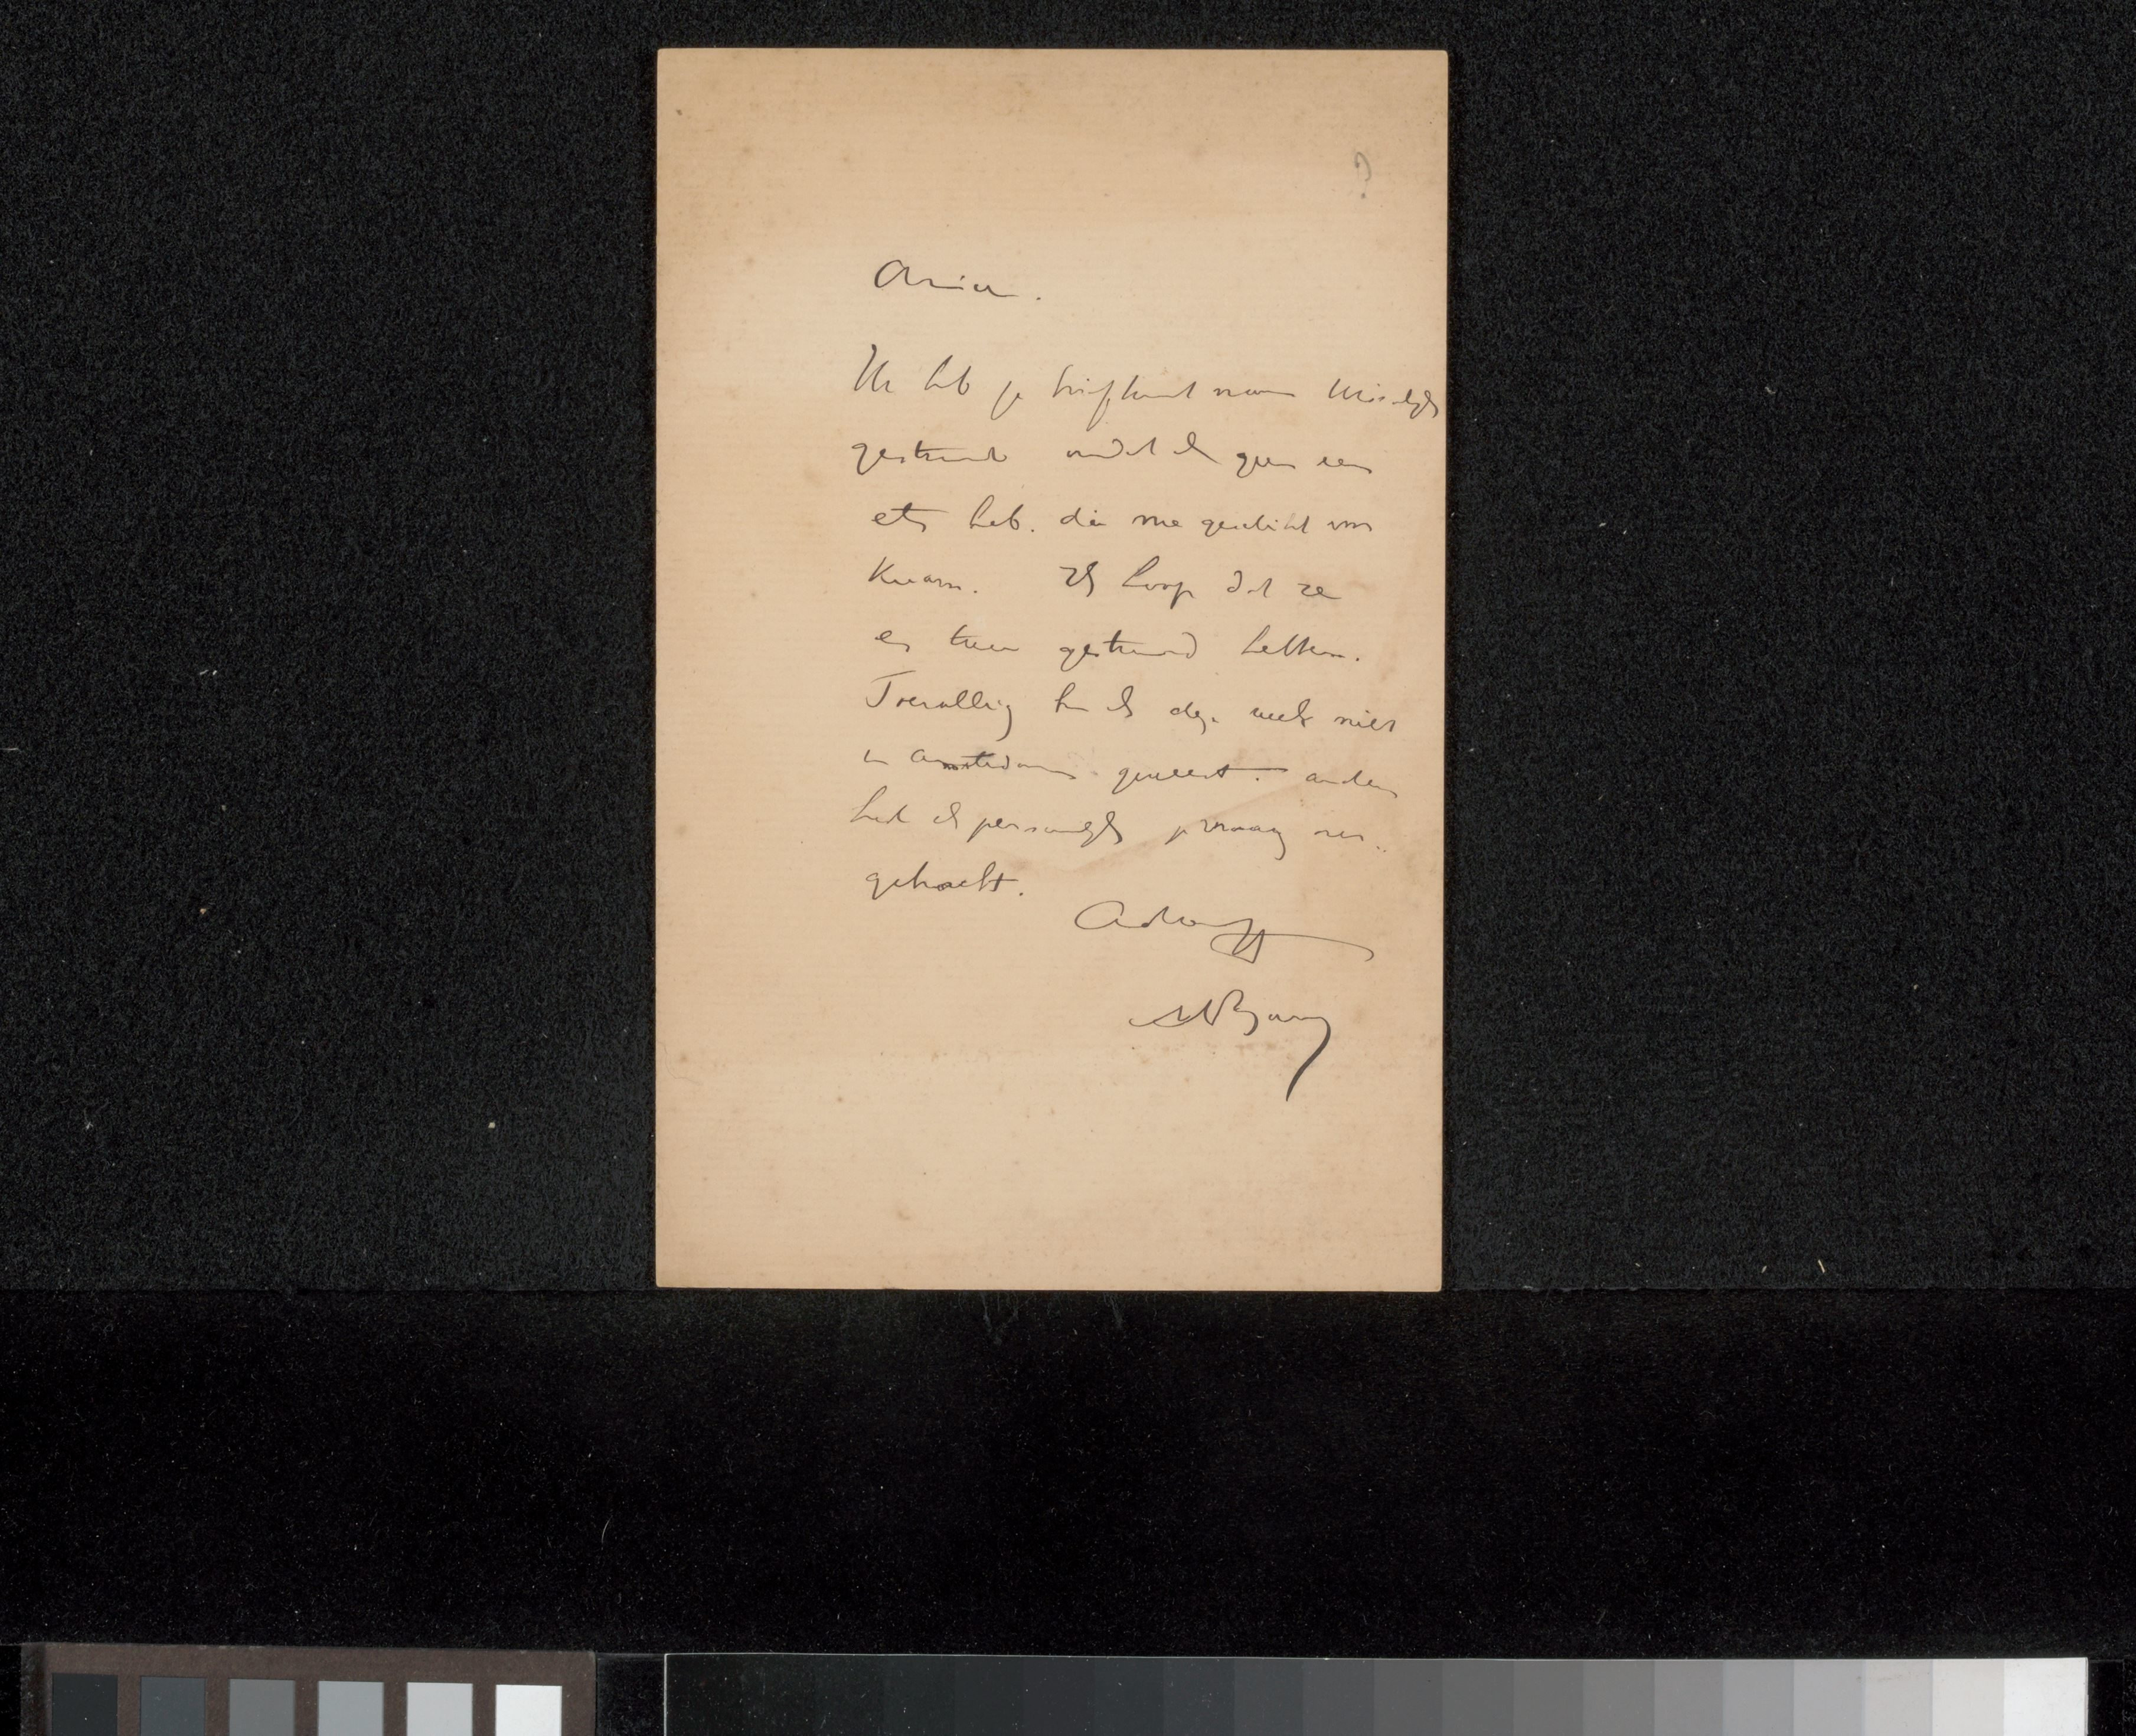 ?
Amice.
Ik heb je briefkaart naar
gestuurd omdat ik geen een
ets heb. die me geschikt voor
kwam. Ik hoop dat ze
er twee gestuurd hebben.
Toevallig ben ik deze week niet
in Amsterdam geweest. anders
had ik persoonlijk je vraag over.
gebracht.